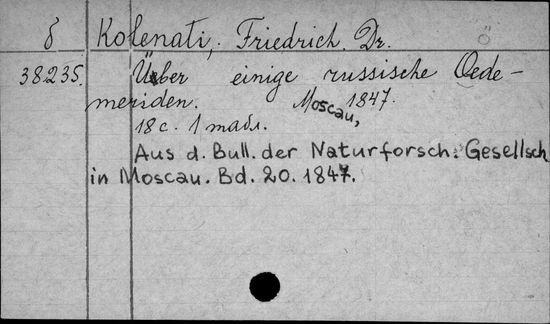 δ Kolenati, Friedrich. Dr.
38235. Über einige russische Oede-
meriden. Moscau, 1847.
18 c. 1 табл.
Aus d. Bull. der Naturforsch. Gesellsch
in Moscau. Bd. 20. 1847.